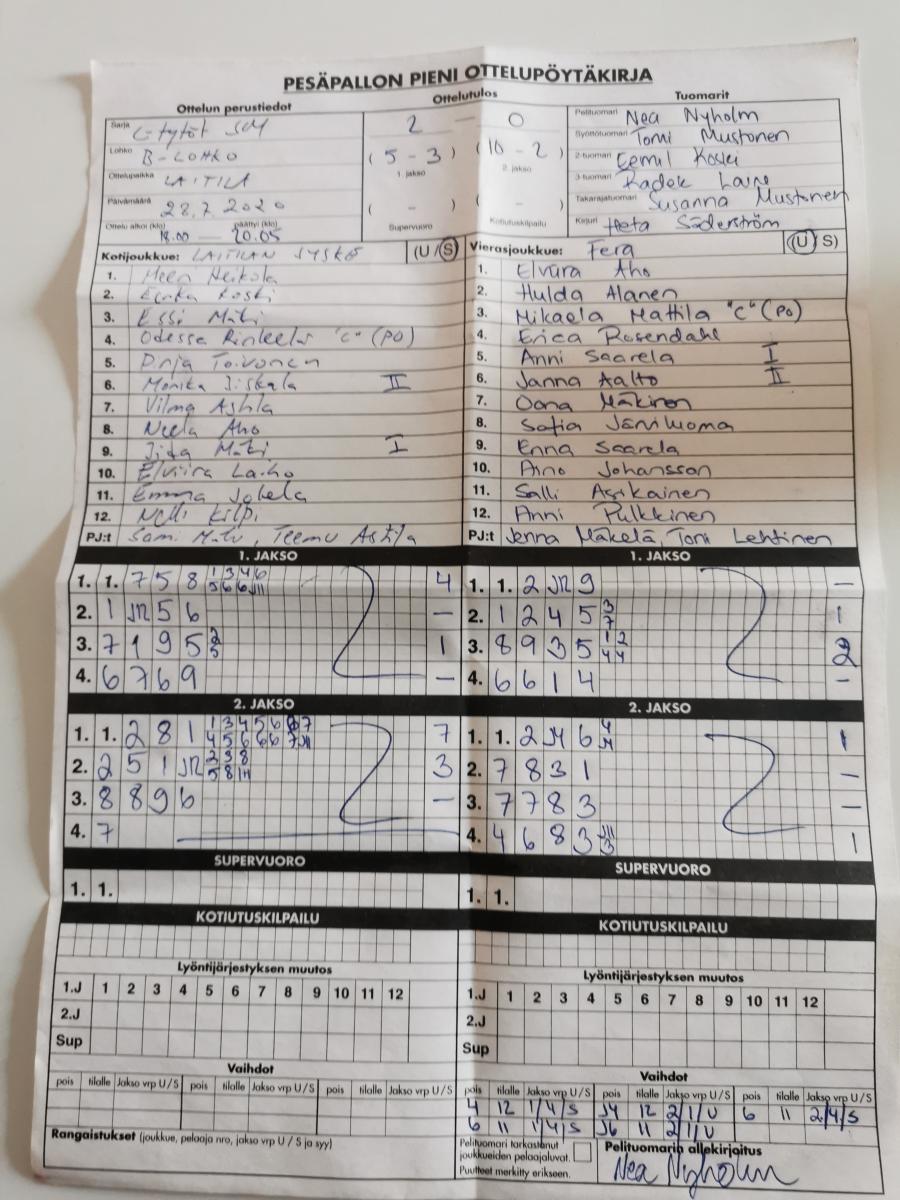 PESÄPALLON PIENI OTTELUPÖYTÄKIRJA
Ottelun perustiedot Ottelutulos Tuomarit
Sarja C-tytöt SM
2 — 0
Pelituomari Nea Nyholm
Lohko B-LOHKO
Syöttötuomari Tomi Mustonen
Ottelupaikka LAITILA
( 5 - 3 ) ( 10 - 2 )
1. jakso 2. jakso
2-tuomari Eemil Koski
3-tuomari Radek Laine
Päivämäärä 28.7.2020
( - ) -
Takarajatuomari Susanna Mustonen
Ottelu alkoi (klo) päättyi (klo)
18.00 — 20.05
Supervuoro Kotiutuskilpailu
Kirjuri Heta Söderström
Kotijoukkue: LAITILAN JYSKE (U/S) Vierasjoukkue: Fera (U/S)
1. Meeri Heikola 1. Elvira Aho
2. Eerika Koski 2. Hulda Alanen
3. Essi Mäki 3. Mikaela Mattila "C" (PO)
4. Odessa "C" (PO) 4. Erica Rosendahl
5. Pinja Toivonen 5. Anni Saarela I
6. Monika II 6. Janna Aalto II
7. Vilma Ashla 7. Oona Mäkinen
8. Neela Aho 8. Sofia Järviluoma
9. Iida Mäki I 9. Enna Saarela
10. Elviira Laiho 10. Aino Johansson
11. Emma Jokela 11. Salli Asikainen
12. Nelli Kilpi 12. Anni Pulkkinen
PJ:t Sami Teemu PJ:t Jenna Mäkelä, Toni Lehtinen
1. JAKSO 1. JAKSO
1. 1. 7 5 8 4 1. 1. 2 9 —
2. 1 5 6 — 2. 1 2 4 5 3 7 1
3. 7 1 9 5 1 3. 8 9 3 5 2
4. 6 7 6 9 — 4. 6 6 1 4 —
2. JAKSO 2. JAKSO
1. 1. 2 8 1 7 1. 1. 2 6 1
2. 2 5 1 3 2. 7 8 3 1 —
3. 8 8 9 6 — 3. 7 7 8 3 —
4. 7 4. 4 6 8 3 1
SUPERVUORO SUPERVUORO
1. 1. 1. 1.
KOTIUTUSKILPAILU KOTIUTUSKILPAILU
Lyöntijärjestyksen muutos Lyöntijärjestyksen muutos
1.J 1 2 3 4 5 6 7 8 9 10 11 12 1.J 1 2 3 4 5 6 7 8 9 10 11 12
2.J 2.J
Sup Sup
Vaihdot Vaihdot
pois tilalle Jakso vrp U/S pois tilalle Jakso vrp U/S pois tilalle Jakso vrp U/S pois tilalle Jakso vrp U/S pois tilalle Jakso vrp U/S pois tilalle Jakso vrp U/S
4 12 1/4/S J4 12 2/1/U 6 11 2/4/S
6 11 1/4/S J6 11 2/1/U
Rangaistukset (joukkue, pelaaja nro, jakso vrp U / S ja syy)
Pelituomari tarkastanut
joukkueiden pelaajaluvat.
Puutteet merkitty erikseen.
Pelituomarin allekirjoitus
Nea Nyholm